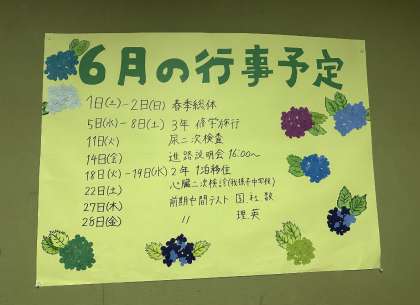 6月の行事予定
1日(土)-2日(日) 春季総体
5日(水)-8日(土) 3年 修学旅行
11日(火) 尿二次検査
14日(金) 進路説明会 16:00~
18日(火)-19日(水) 2年 1泊移住
22日(土) 心臓二次検診(我孫子中学校)
27日(木) 前期中間テスト 国社数
28日(金) 〃 理英